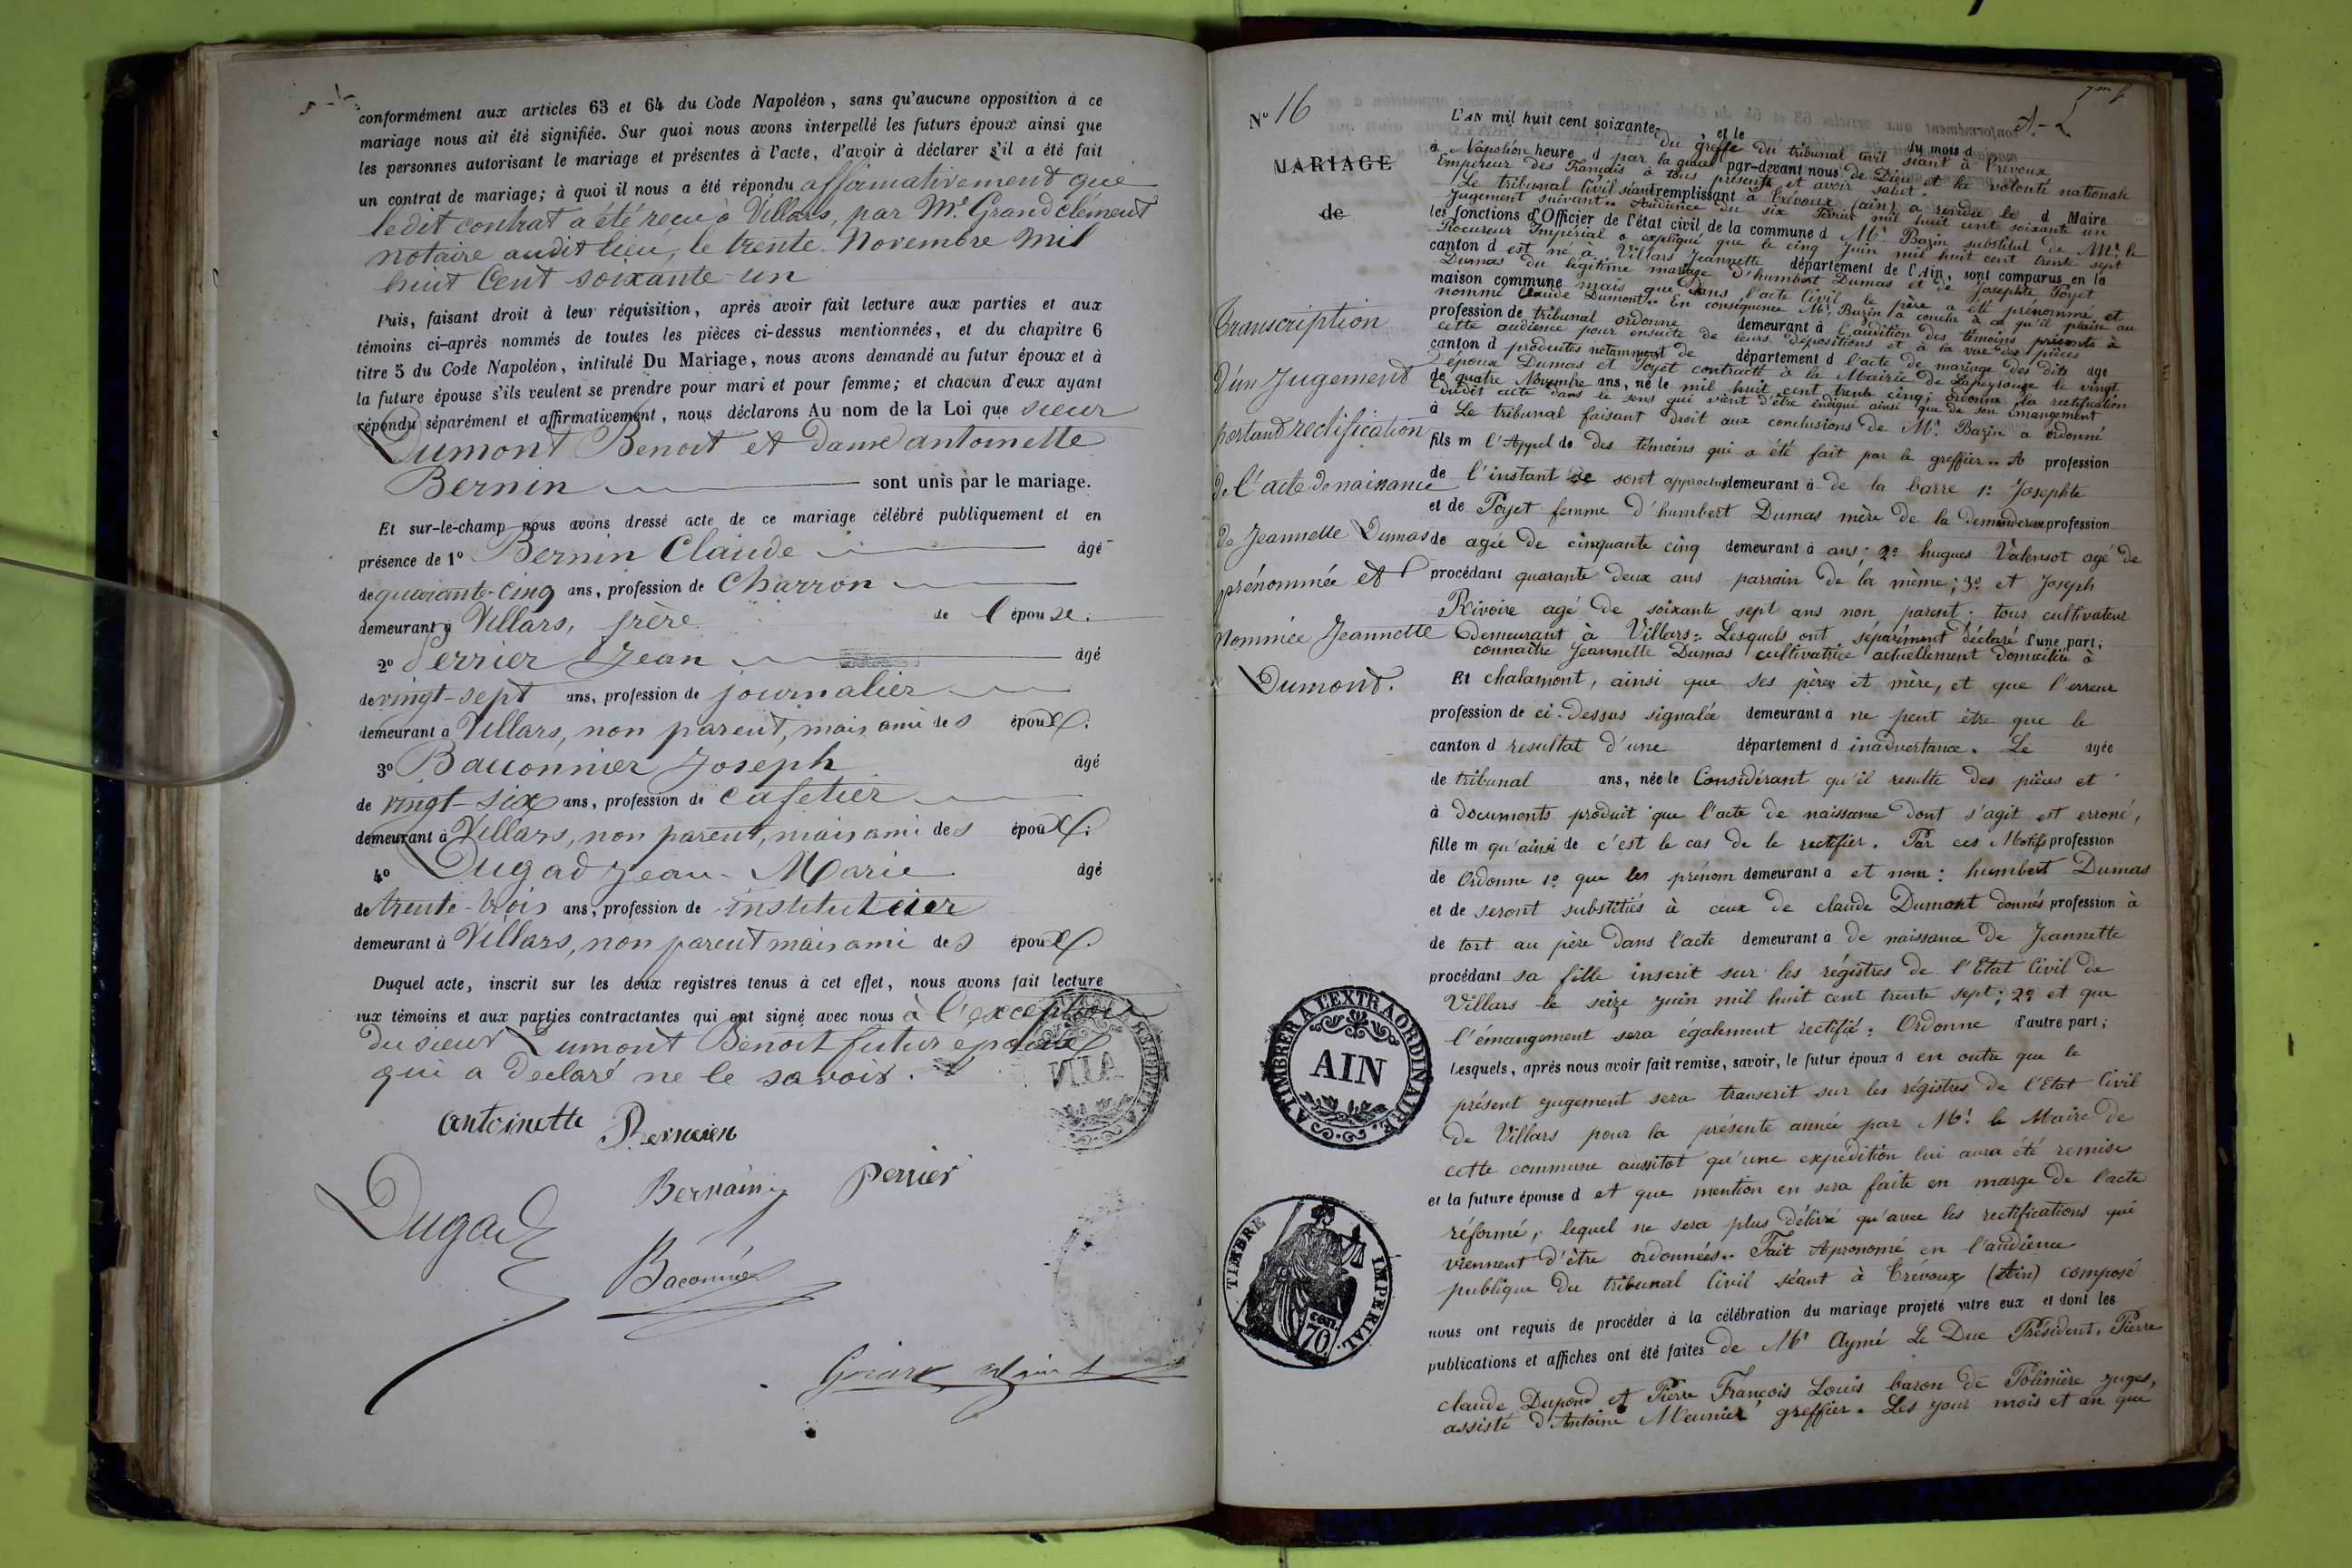 conformément aux articles 63 et 64 du Code Napoléon, sans qu'aucune opposition à ce
mariage nous ait été signifiée. Sur quoi nous avons interpellé les futurs époux ainsi que
les personnes autorisant le mariage et présentes à l'acte, d'avoir à déclarer s'il a été fait
un contrat de mariage; à quoi il nous a été répondu affirmativement que
ledit contrat a été recu à Villars, par Me Grandclément
notaire audit lieu, le trente Novembre mil
huit Cent soixante un
Puis, faisant droit à leur réquisition, après avoir fait lecture aux parties et aux
témoins ci-après nommés de toutes les pièces ci-dessus mentionnées, et du chapitre 6
titre 5 du Code Napoléon, intitulé Du Mariage, nous avons demandé au futur époux et à
la future épouse s'ils veulent se prendre pour mari et pour femme; et chacun d'eux ayant
répondu séparément et affirmativement, nous déclarons Au nom de la Loi que sieur
Dumont Benoit et dame antoinette
Bernin sont unis par le mariage.
Et sur-le-champ nous avons dressé acte de ce mariage célébré publiquement et en
présence de 1º Bernin Claude âgé
de quarante-cinq ans, profession de Charron
demeurant à Villars, frère de l'épouse.
2º Perrier Jean âgé
de vingt-sept ans, profession de journalier
demeurant à Villars, non parent, mais ami des époux.
3º Bauconnier Joseph âgé
de vingt-six ans, profession de cafetier
demeurant à Villars, non parent, mais ami des époux.
4º Dugad Jean-Marie âgé
de trente-trois ans, profession de instituteur
demeurant à Villars, non parent mais ami des époux.
Duquel acte, inscrit sur les deux registres tenus à cet effet, nous avons fait lecture
aux témoins et aux parties contractantes qui ont signé avec nous à l'exception
du sieur Dumont Benoit futur époux
qui a declaré ne le savoir.
antoinette Bernin
Bernain Perrier
Dugad
Baconnier
Nº 16
MARIAGE
de
Transcription
d'un Jugement
portant rectification
de l'acte de naissance
de Jeannette Dumas
prénommée et
nommée Jeannette
Dumont.
A TIMBRER A L'EXTRAORDINAIRE
AIN
TIMBRE IMPERIAL
70
L'AN mil huit cent soixante- , et le du mois d
du greffe du tribunal civil séant à Trévoux
à heure d par-devant nous
Napoléon par la grace de Dieu et la volonté nationale
Empereur des Français à tous présents et avoir salut.
Le tribunal Civil séant à Trévoux (ain) a rendu le
remplissant d Maire
Jugement suivant.. Audience du six Février mil huit cent soixante un
les fonctions d'Officier de l'état civil de la commune d Mr Bazin substitut de Mr le
Procureur Impérial a expliqué que le cinq Juin mil huit cent trente sept
canton d est né à Villars Jeannette département de l'Ain, sont comparus en la
Dumas du légitime mariage d'humbert Dumas et de Josephte Poyet
maison commune mais que dans l'acte Civil le père a été prénommé et
nommé Claude Dumont.. En conséquence Mr Bazin a conclu à ce qu'il plaise au
profession de tribunal ordonne demeurant à l'audition des témoins présents à
cette audience pour ensuite de leurs dépositions et à la vue des pièces
canton d produites notamment de département d l'acte de mariage des dits âgé
époux Dumas et Poyet contracté à la Mairie de Lapeyrouse le vingt
de quatre Novembre ans, né le mil huit cent trente cinq; ordonne la rectification
dudit acte dans le sens qui vient d'être indiqué ainsi que de son émangement
à Le tribunal faisant droit aux conclusions de Mr Bazin a ordonné
fils m l'Appel de des témoins qui a été fait par le greffier.. A profession
de l'instant se sont approchés demeurant à de la barre 1º Josephte
et de Poyet femme d'humbert Dumas mère de la demanderesse profession
de agée de cinquante cinq demeurant à ans; 2º hugues Valensot agé de
procédant quarante deux ans parrain de la même; 3º et Joseph
Rivoire agé de soixante sept ans non parent; tous cultivateur
demeurant à Villars: Lesquels ont séparément déclaré d'une part;
connaitre Jeannette Dumas cultivatrice actuellement domiciliée à
Et chalamont, ainsi que ses pères et mère, et que l'erreur
profession de ci-dessus signalée demeurant à ne peut être que le
canton d resultat d'une département d inadvertance. Le âgée
de tribunal ans, née le Considérant qu'il resulte des pièces et
à documents produit que l'acte de naissance dont s'agit est erroné,
fille m qu'ainsi de c'est le cas de le rectifier. Par ces Motifs profession
de Ordonne 1º que les prénom demeurant à et nom: humbert Dumas
et de seront substitués à ceux de claude Dumont donnés profession à
de tort au père dans l'acte demeurant à de naissance de Jeannette
procédant sa fille inscrit sur les régistres de l'Etat Civil de
Villars le seize juin mil huit cent trente sept; 2º et que
l'émangement sera également rectifié: Ordonne d'autre part;
Lesquels, après nous avoir fait remise, savoir, le futur époux d en outre que le
présent jugement sera transcrit sur les régistres de l'Etat Civil
de Villars pour la présente année par Mr le Maire de
cette commune aussitot qu'une expédition lui aura été remise
et la future épouse d et que mention en sera faite en marge de l'acte
réformé, lequel ne sera plus délivré qu'avec les rectifications qui
viennent d'être ordonnées.. Fait & prononcé en l'audience
publique du tribunal Civil séant à Trévoux (Ain) composé
nous ont requis de procéder à la célébration du mariage projeté entre eux et dont les
publications et affiches ont été faites de Mr Aymé Le Duc Président, Pierre
claude Dupond et Pierre François Louis baron de Polinière juges,
assisté d'Antoine Meunier greffier. Les jour mois et an que